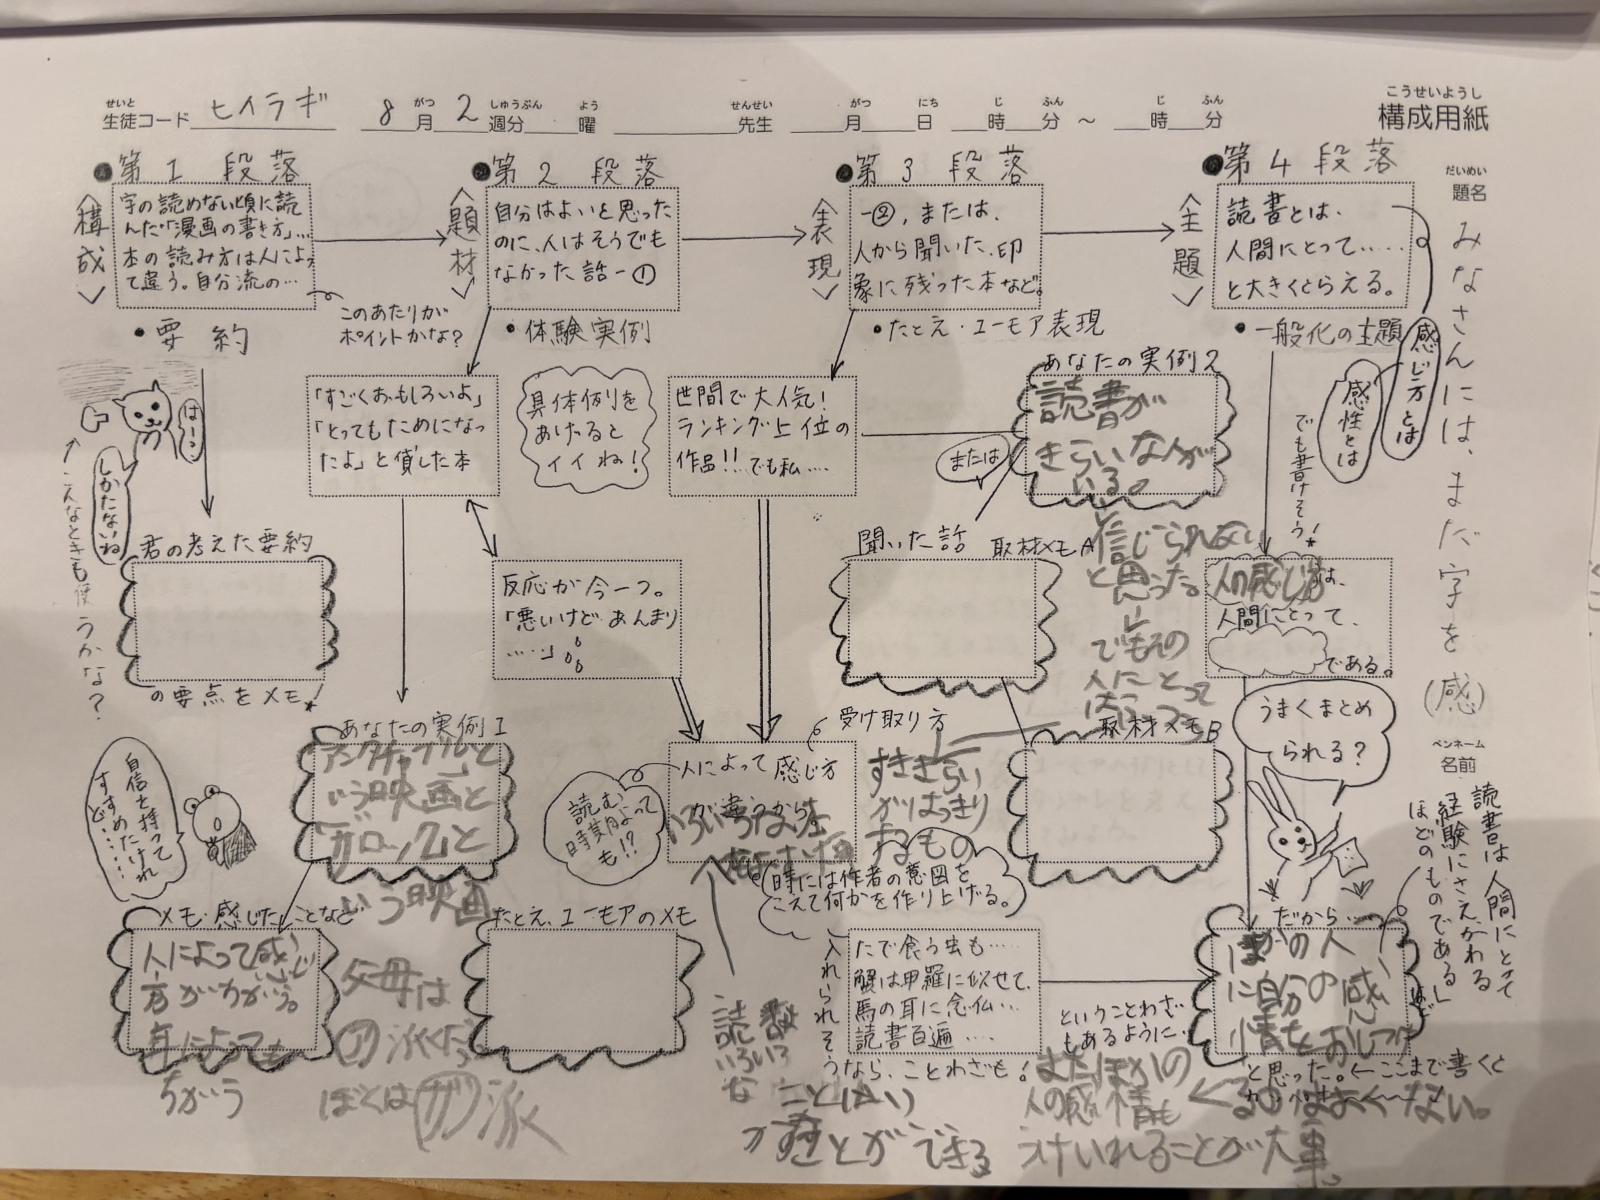 構成用紙
こうせいようし
せいと
生徒コード ヒイラギ
8月 2週分 曜
がつ しゅうぶん よう
せんせい
先生
がつ にち じ ふん じ ふん
月 日 時 分 ～ 時 分
だいめい
題名
みなさんには、まだ字を(感)
ペンネーム
名前
読書は人間にとって
経験にさえかわる
ほどのものである」
●第1段落
〈構成〉
字の読めない頃に読
んだ「漫画の書き方」…
本の読み方は人によっ
て違う。自分流の…
このあたりが
ポイントかな?
・要約
はーン
しかたないね
こんなときも使うかな?
君の考えた要約
の要点をメモ!
自信を持って
すすめたけれ
ど……
メモ・感じたことなど
人によって感じ
方がちがう。
年によっても
ちがう
●第2段落
〈題材〉
自分はよいと思った
のに、人はそうでも
なかった話ー①
・体験実例
「すごくおもしろいよ」
「とってもためになっ
たよ」と貸した本
具体例を
あげると
イイね!
反応が今一つ。
「悪いけど、あんまり
……」
あなたの実例1
いう映画と
いう映画
父母は
ぼくは
派
たとえ、ユーモアのメモ
●第3段落
〈表現〉
ー②、または、
人から聞いた、印
象に残った本など。
・たとえ・ユーモア表現
世間で大人気!
ランキング上位の
作品!!でも私……
または
あなたの実例2
読書が
きらいな人が
いる。
信じられない
と思った。
でもその
人にとって
聞いた話
取材メモA
取材メモB
受け取り方
人によって感じ方
が違うから。
読む
時期によって
も!?
すききらい
がはっきり
するもの
時には作者の意図を
こえて何かを作り上げる。
いろいろ
な
たで食う虫も……
蟹は甲羅に似せて、
馬の耳に念仏…
読書百遍……
入れられそうなら、ことわざも!
ということわざ
もあるように…
ことができる
●第4段落
〈主題〉
読書とは、
人間にとって……
と大きくとらえる。
・一般化の主題
感じ方とは
感性とは
でも書けそう!
人の感じ方は、
人間にとって、
である。
うまくまとめ
られる?
だから…
ほかの人
に自分の感
情をおしつけ
と思った。←ここまで書くと
くるのはよくない。
またほかの
人の感情も
うけいれることが大事。